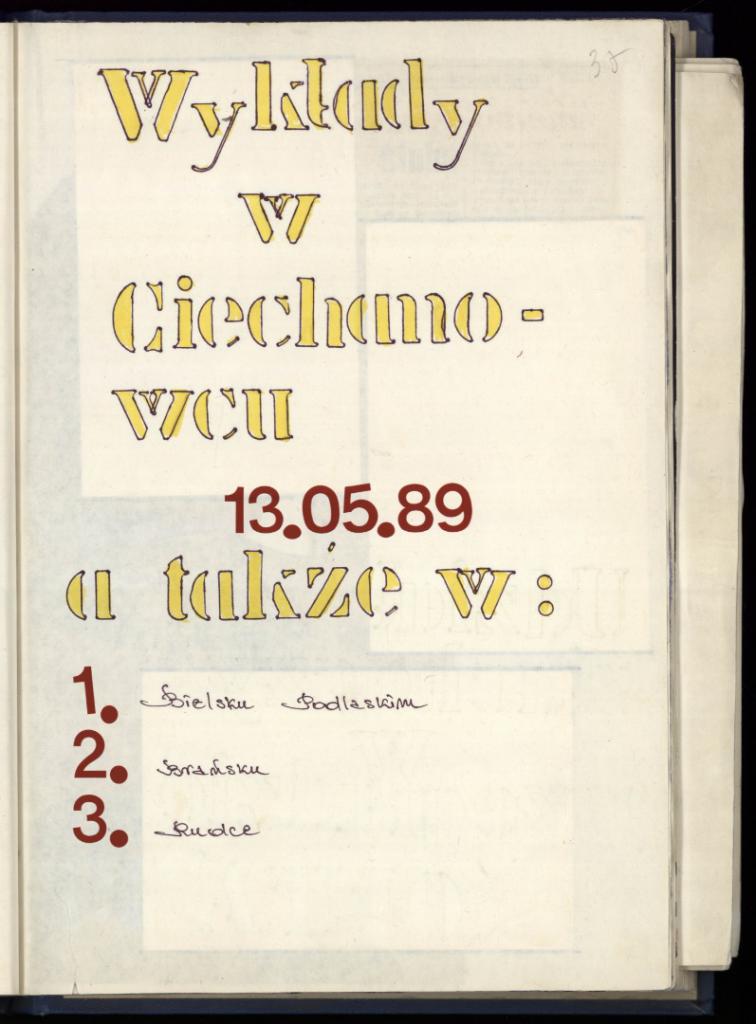 Wykłady
w
Ciechano-
wcu
13.05.89
a także w:
1. Bielsku Podlaskim
2. Brańsku
3. Rudce